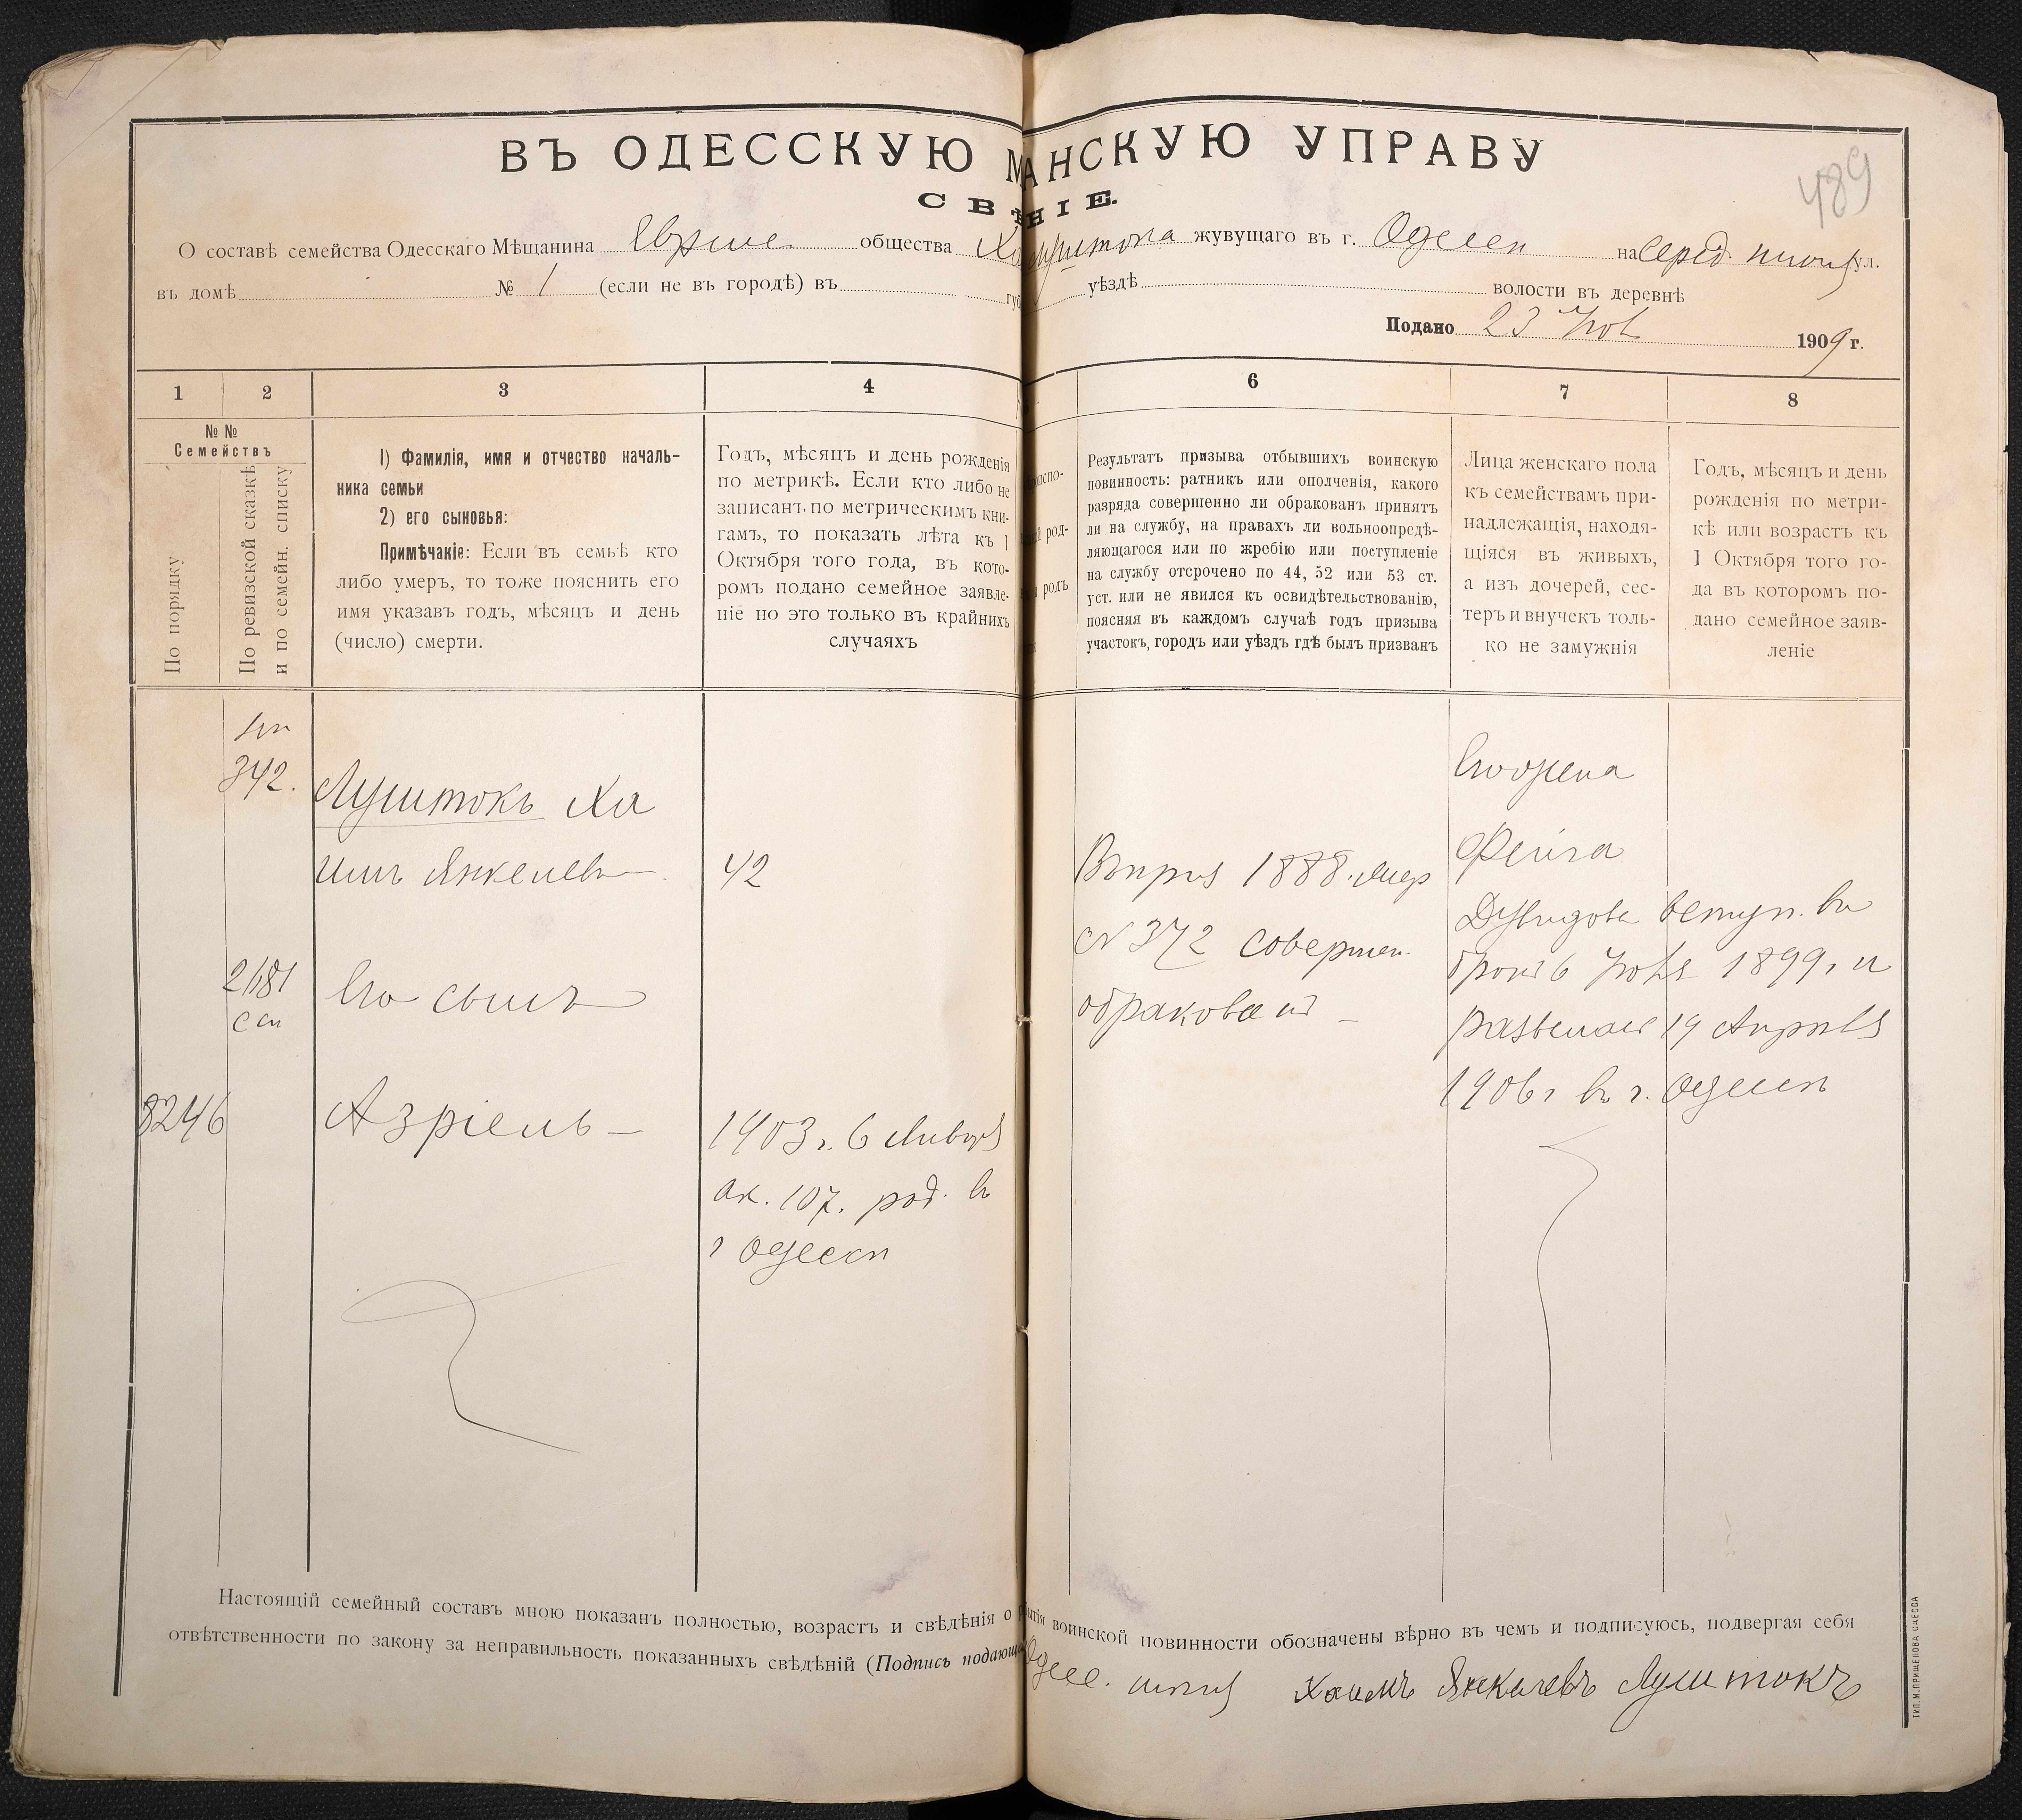 ВЪ ОДЕССКУЮ М АНСКУЮ УПРАВУ
СВѢ НІЕ.
489
О составѣ семейства Одесскаго Мѣщанина Еврейс. общества Ха Луштока жувущаго въ г. Одессѣ на Серед. ул.
въ домѣ № 1 (если не въ городѣ) въ губ уѣздѣ волости въ деревнѣ
Подано 23 Ноя 1909 г.
1 2 3 4 6 7 8
№ №
Семействъ
По порядку
По ревизской сказкѣ
и по семейн. списку
1) Фамилія, имя и отчество началь-
ника семьи
2) его сыновья:
Примѣчаніе: Если въ семьѣ кто
либо умеръ, то тоже пояснить его
имя указавъ годъ, мѣсяцъ и день
(число) смерти.
Годъ, мѣсяцъ и день рожденія
по метрикѣ. Если кто либо не
записанъ по метрическимъ кни-
гамъ, то показать лѣта къ 1
Октября того года, въ кото-
ромъ подано семейное заявле-
ніе но это только въ крайнихъ
случаяхъ
испо-
род-
родъ
Результатъ призыва отбывшихъ воинскую
повинность: ратникъ или ополченія, какого
разряда совершенно ли обракованъ принятъ
ли на службу, на правахъ ли вольноопредѣ-
ляющагося или по жребію или поступленіе
на службу отсрочено по 44, 52 или 53 ст.
уст. или не явился къ освидѣтельствованію,
поясняя въ каждомъ случаѣ годъ призыва
участокъ, городъ или уѣздъ гдѣ былъ призванъ
Лица женскаго пола
къ семействамъ при-
надлежащія, находя-
щіяся въ живыхъ,
а изъ дочерей, сес-
теръ и внучекъ толь-
ко не замужнія
Годъ, мѣсяцъ и день
рожденія по метри-
кѣ или возрастъ къ
1 Октября того го-
да въ которомъ по-
дано семейное заяв-
леніе
342.
Луштокъ Ха
имъ Янкелевъ
42
2681
Его сынъ
8246
Азріель
1903 г. 6 Январ
ак. 107. род. въ
г Одессѣ
1888.
№ 372 совершен.
обракован
Его жена
Фейга
Дувидова вступ. въ
бракъ 6 Ноя 1899 г и
19 Апрѣля
1906 г въ г. Одессѣ
Настоящій семейный составъ мною показанъ полностью, возрастъ и свѣдѣнія о бытія воинской повинности обозначены вѣрно въ чемъ и подписуюсь, подвергая себя
отвѣтственности по закону за неправильность показанныхъ свѣдѣній (Подпись подающ Одес. Хаимъ Янкелевъ Луштокъ
ТИП. М. ПРИЩЕПОВА ОДЕССА